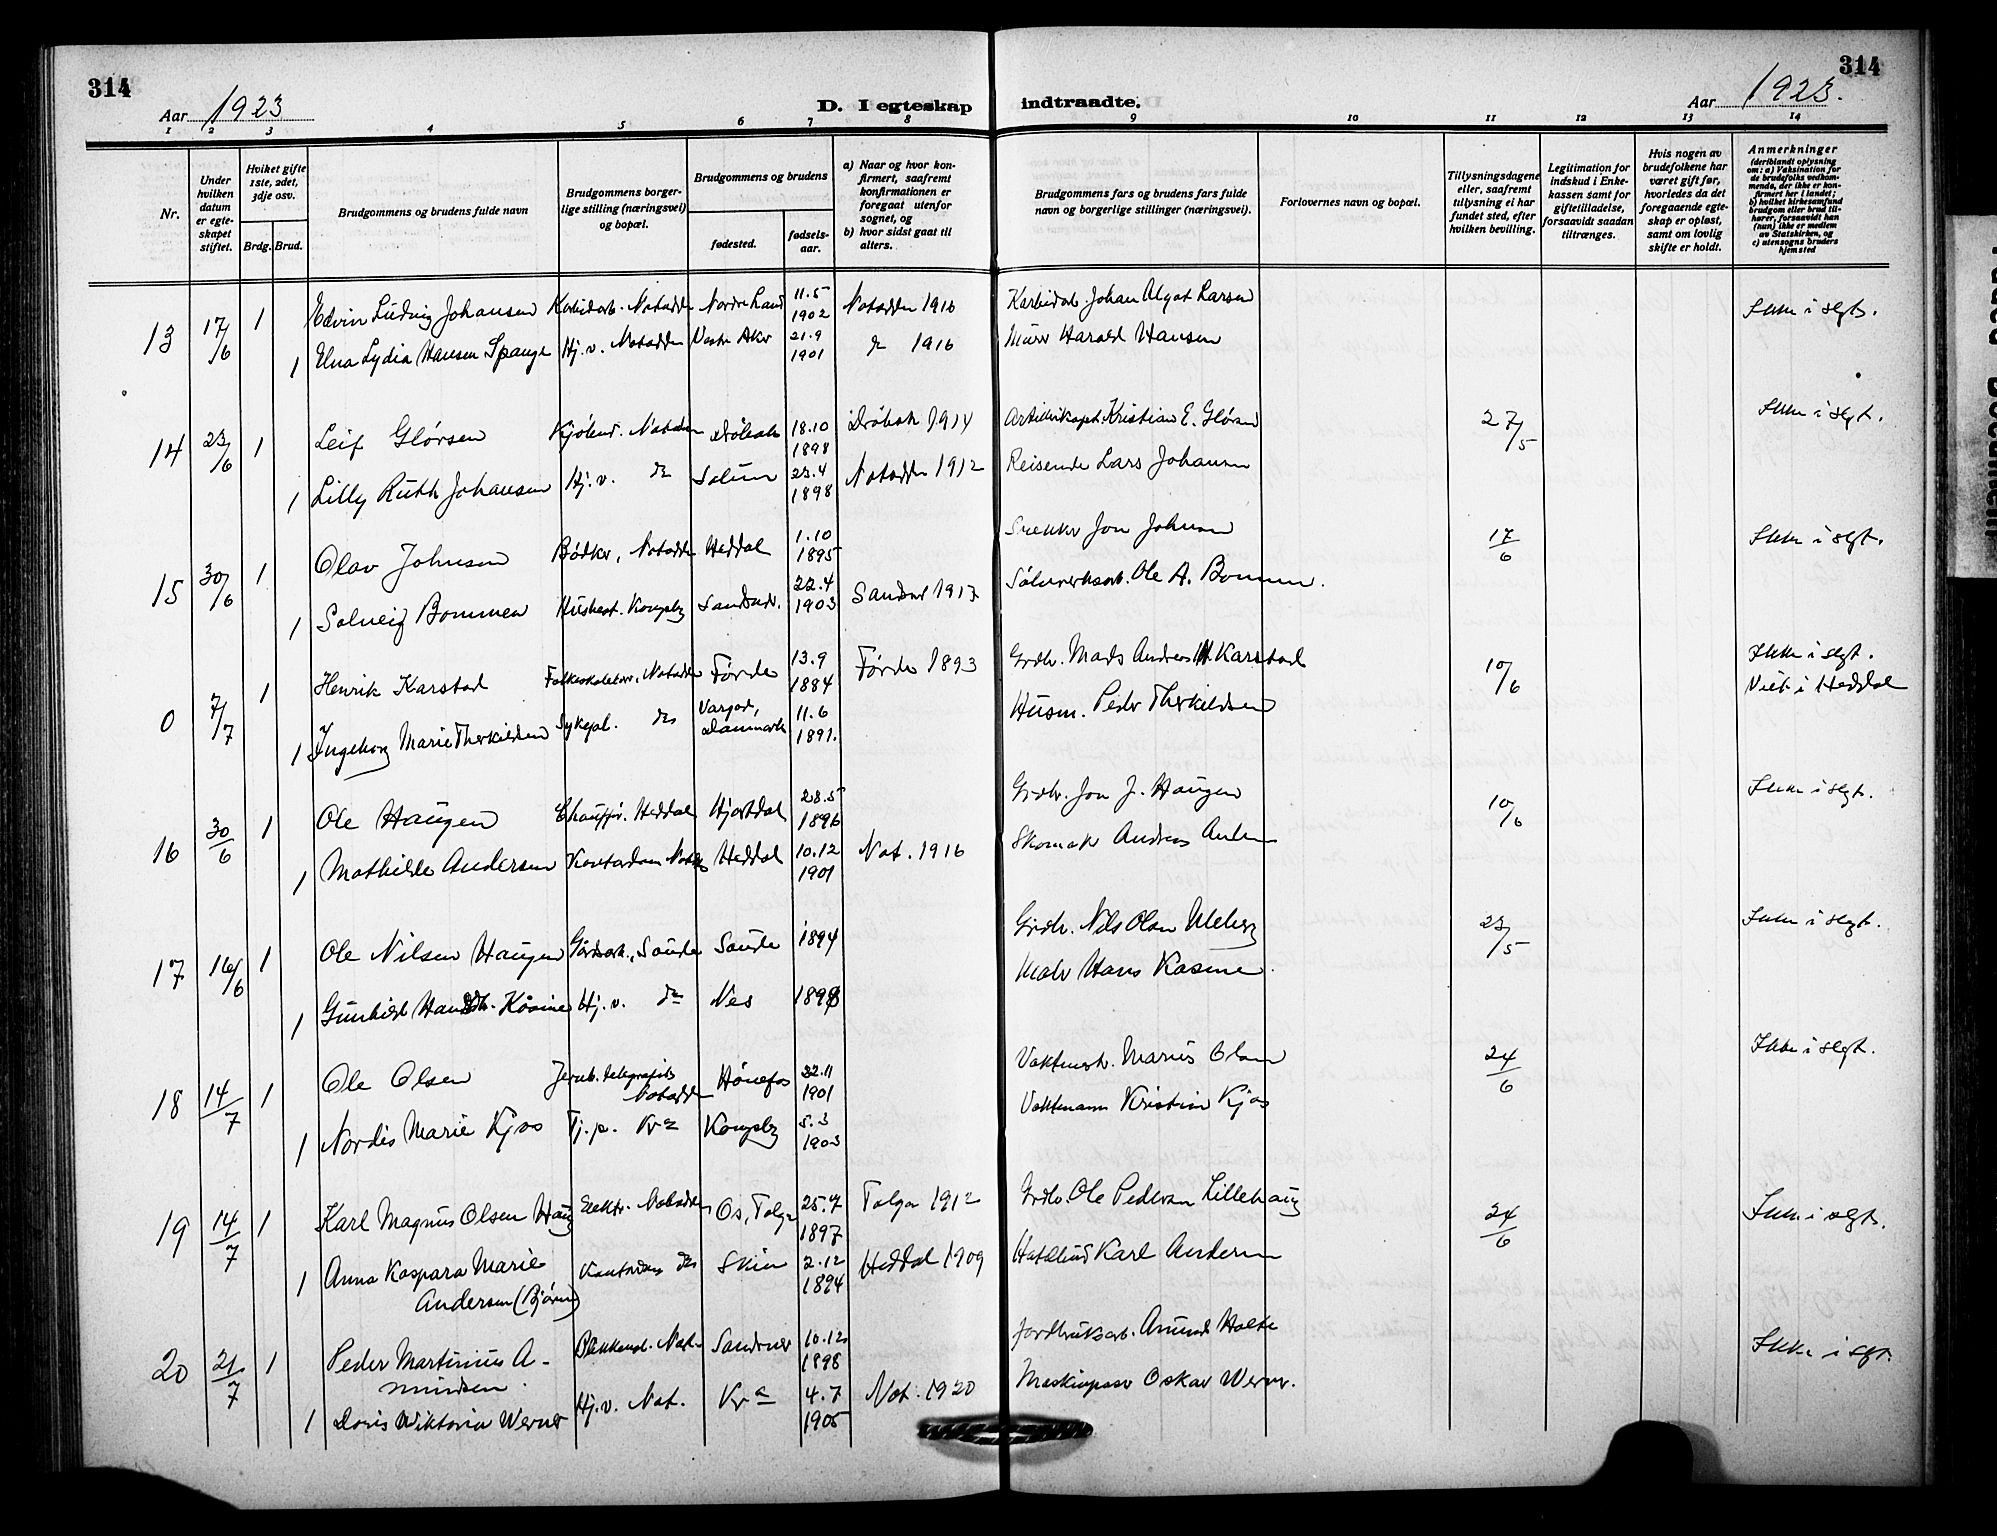 314
Aar 1923
D. I egteskap
indtraadte.
Aar 1923.
314
1 2 3 4 5 6 7 8 9 10 11 12 13 14
Nr.
Under hvilken datum er egteskapet stiftet.
Hviket gifte 1ste, 2det, 3dje osv.
Brdg. Brud.
Brudgommens og brudens fulde navn
Brudgommens borgerlige stilling (næringsvei) og bopæl.
Brudgommens og brudens
fødested.
fødselsaar.
a) Naar og hvor konfirmert, saafremt konfirmationen er foregaaet utenfor sognet, og
b) hvor sidst gaat til alters.
Brudgommens fars og brudens fars fulde navn og borgerlige stillinger (næringsvei).
Forlovernes navn og bopæl.
Tillysningsdagene eller, saafremt tillysning ei har fundet sted, efter hvilken bevilling.
Legitimation for indskud i Enkekassen samt for giftetilladelse, forsaavidt saadan tiltrænges.
Hvis nogen av brudefolkene har været gift før, hvorledes da det foregaaende egteskap er opløst, samt om lovlig skifte er holdt.
Anmerkninger
(deriblandt oplysning om: a) Vaksination for de brudefolks vedkommende, der ikke er konfirmert her i landet; b) hvilket kirkesamfund brudgom eller brud tilhører, forsaavidt han (hun) ikke er medlem av Statskirken, og c) utensogns bruders hjemsted
13 17/6 1 Edvin Ludvig Johansen Karbidarb. Notodden Nordre Land 11.5 1902 Notodden 1916 Karbidarb. Johan Algot Larsen Ikke i slgt.
1 Elna Lydia Hansen Spange Hj.v. Notodden Vestre Aker 21.9 1901 do 1916 Murer Harald Hansen
14 23/6 1 Leif Glørsen Notodden Drøbak 18.10 1898 Drøbak 1914 Artillerikapt. Kristian E. Glørsen 27/5 Ikke i slgt.
1 Lilly Ruth Johansen Hj.v. do Solum 23.4 1898 Notodden 1912 Reisende Lars Johansen
15 30/6 1 Olav Johnsen Bødker, Notodden Heddal 1.10 1895 Snekker Jon Johnsen 17/6 Ikke i slgt.
1 Solveig Bommen Husbest. Kongsbg Sandsvr. 22.4 1903 Sandsvr 1917 Sølvverksarb. Ole A. Bommen.
0 7/7 1 Henrik Karstad Folkeskolelærer, Notodden Førde 13.9 1884 Førde 1893 Grdbr. Mads Andreas H. Karstad 10/6 Ikke i slgt. Viet i Heddal
1 Ingeborg Marie Therkildsen Sykepl. do Danmark 11.6 1891. Husm. Peder Therkildsen
16 30/6 1 Ole Haugen Chauffør. Heddal Hjartdal 28.5 1896 Grdbr. Jon J. Haugen 10/6 Ikke i slgt.
1 Mathilde Andersen Kontordame Notodd Heddal 10.12 1901 Not. 1916 Skomak Andreas
17 16/6 1 Ole Nilsen Haugen Gårdsarb., Saude Saude 1894 Grdbr. Nils Olsen Uleberg 23/5 Ikke i slgt.
1 Gunhild Kåsine Hj.v. do Nes 1898 Maler Hans Kasine.
18 14/7 1 Ole Olsen Jernb. telegrafist Notodden Hønefos 22.11 1901 Vaktmstr. Marius Olsen 24/6 Ikke i slgt.
1 Nordis Marie Kjos Tj.p. Kra Kongsbg 5.3 1903 Vaktmann Kristian Kjos
19 14/7 1 Karl Magnus Olsen Haug Elektr. Notodden Os, Tolga 25.7 1897 Tolga 1912 Grdbr. Ole Pedersen Lillehaug 24/6 Ikke i slgt.
1 Anna Kaspara Marie Andersen (Bjørn) Kontordame do Skien 2.12 1894 Heddal 1909 Karl Andersen
20 21/7 1 Peder Martinius Amundsen. Not. Sandsvær 10.12 1898 Jordbruksarb. Amund Holte Ikke i slgt.
1 Doris Wiktoria Werner Hj.v. Not. Kra 4.7 1905 Not. 1920 Maskinpasser Oskar Werner.